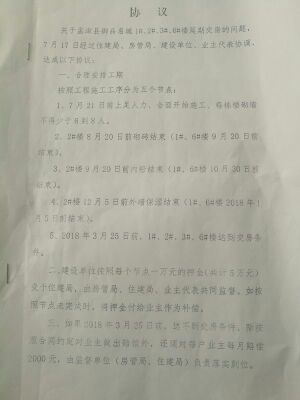 协 议
关于孟津县御品名城1#、2#、3#、6#楼延期交房的问题，
7月17日经过住建局、房管局、建设单位、业主代表协调，
达成以下协议：
一、合理安排工期
按照工程施工工序分为五个节点：
1、7月21日前上足人力、全面开始施工、每栋楼砌墙
不得少于6到8人。
2、2#楼8月20日前砌砖结束（1#、6#楼9月20日前
结束）。
3、2#楼9月20日前内粉结束（1#、6#楼10月30日前
结束）。
4、2#楼12月5日前外墙保温结束（1#、6#楼2018年1
月5日前结束）。
5、2018年3月25日前，1#、2#、3#、6#楼达到交房条
件。
二、建设单位按照每个节点一万元的押金（共计5万元）
交于住建局，由房管局、住建局、业主代表共同监督，如按
照节点未完成时，将押金付给业主作为补偿。
三、如果2018年3月25日前，达不到交房条件，除按
原合同约定对业主做出赔偿外，还须对每户业主每月赔偿
2000元，由监督单位（房管局、住建局）负责落实到位。